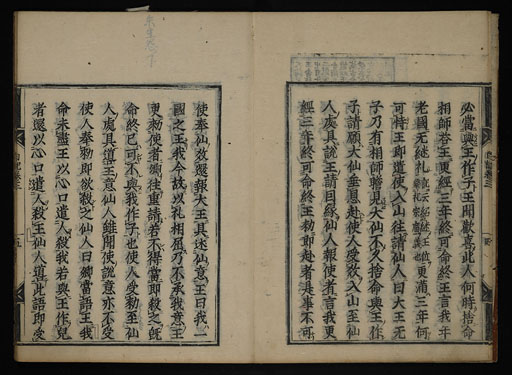 必當與王作子王聞歡喜此人何時捨命
相師答王更經三年終可命終王言我年
老國无継礼更滿三年何
可恃王即遣使入山往請仙人曰大王无
子乃有相師瞻見大仙不久捨命與王作
子請願大仙垂愍赴使人受教入山至仙
人處具說王請因縁仙人報使者言我更
經三年終可命終王勑即赴者是事不可
使奉仙教還報大王具述仙意王曰我一
國之王我今故以礼相屈乃不承我意王
更勑使者卿往重請若不得當即殺之旣
命終已可不與我作子也使人受勑至仙
人處具噵王意仙人雖聞使說意亦不受
使人奉勑即欲殺之仙人曰卿當語王我
命未盡王以心口遣人殺我若與王作兒
者還以心口遣人殺王仙人噵此語即受